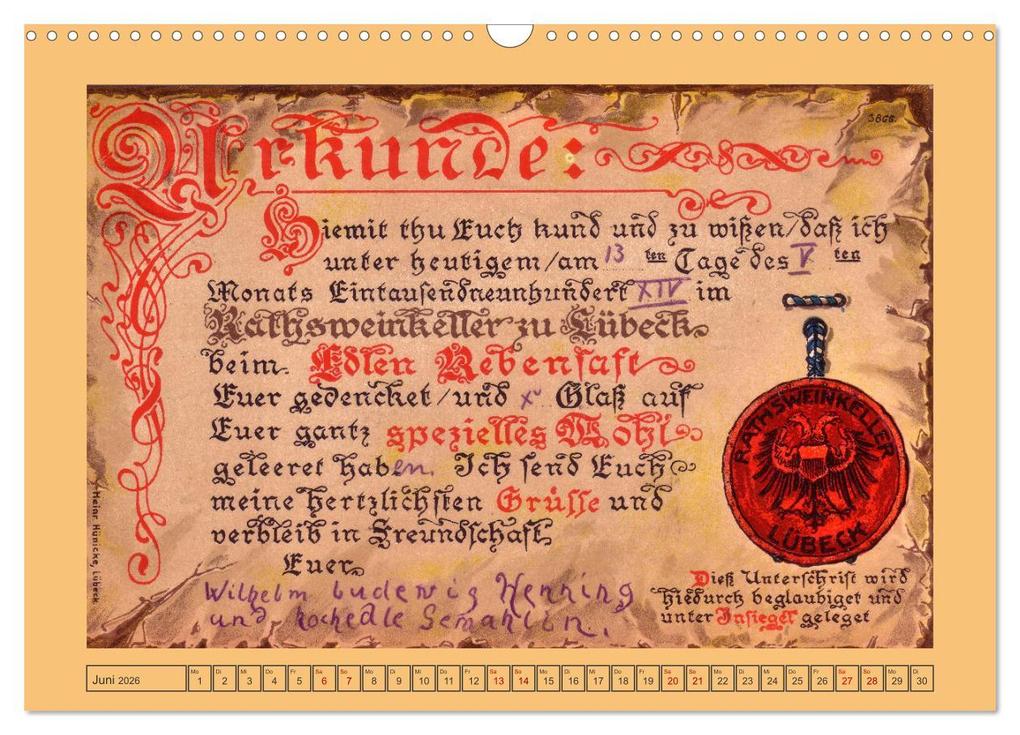 Urkunde:
3868.
Hiemit thu Euch kund und zu wißen/daß ich
unter heutigem/am 13 ten Tage des V ten
Monats Eintausendneunhundert XIV im
Rathsweinkeller zu Lübeck
beim Edlen Rebensaft
Euer gedencket/und x Glaß auf
Euer gantz spezielles Wohl
geleeret haben. Ich send Euch
meine hertzlichsten Grüsse und
verbleib in Freundschaft
Euer
Wilhelm Ludewig Henning
und hochedle Gemahlin.
RATHSWEINKELLER
LÜBECK
Dieß Unterschrift wird
hiedurch beglaubiget und
unter Insiegel geleget
Heinr. Hünicke, Lübeck
Juni 2026
Mo Di Mi Do Fr Sa So Mo Di Mi Do Fr Sa So Mo Di Mi Do Fr Sa So Mo Di Mi Do Fr Sa So Mo Di
1 2 3 4 5 6 7 8 9 10 11 12 13 14 15 16 17 18 19 20 21 22 23 24 25 26 27 28 29 30